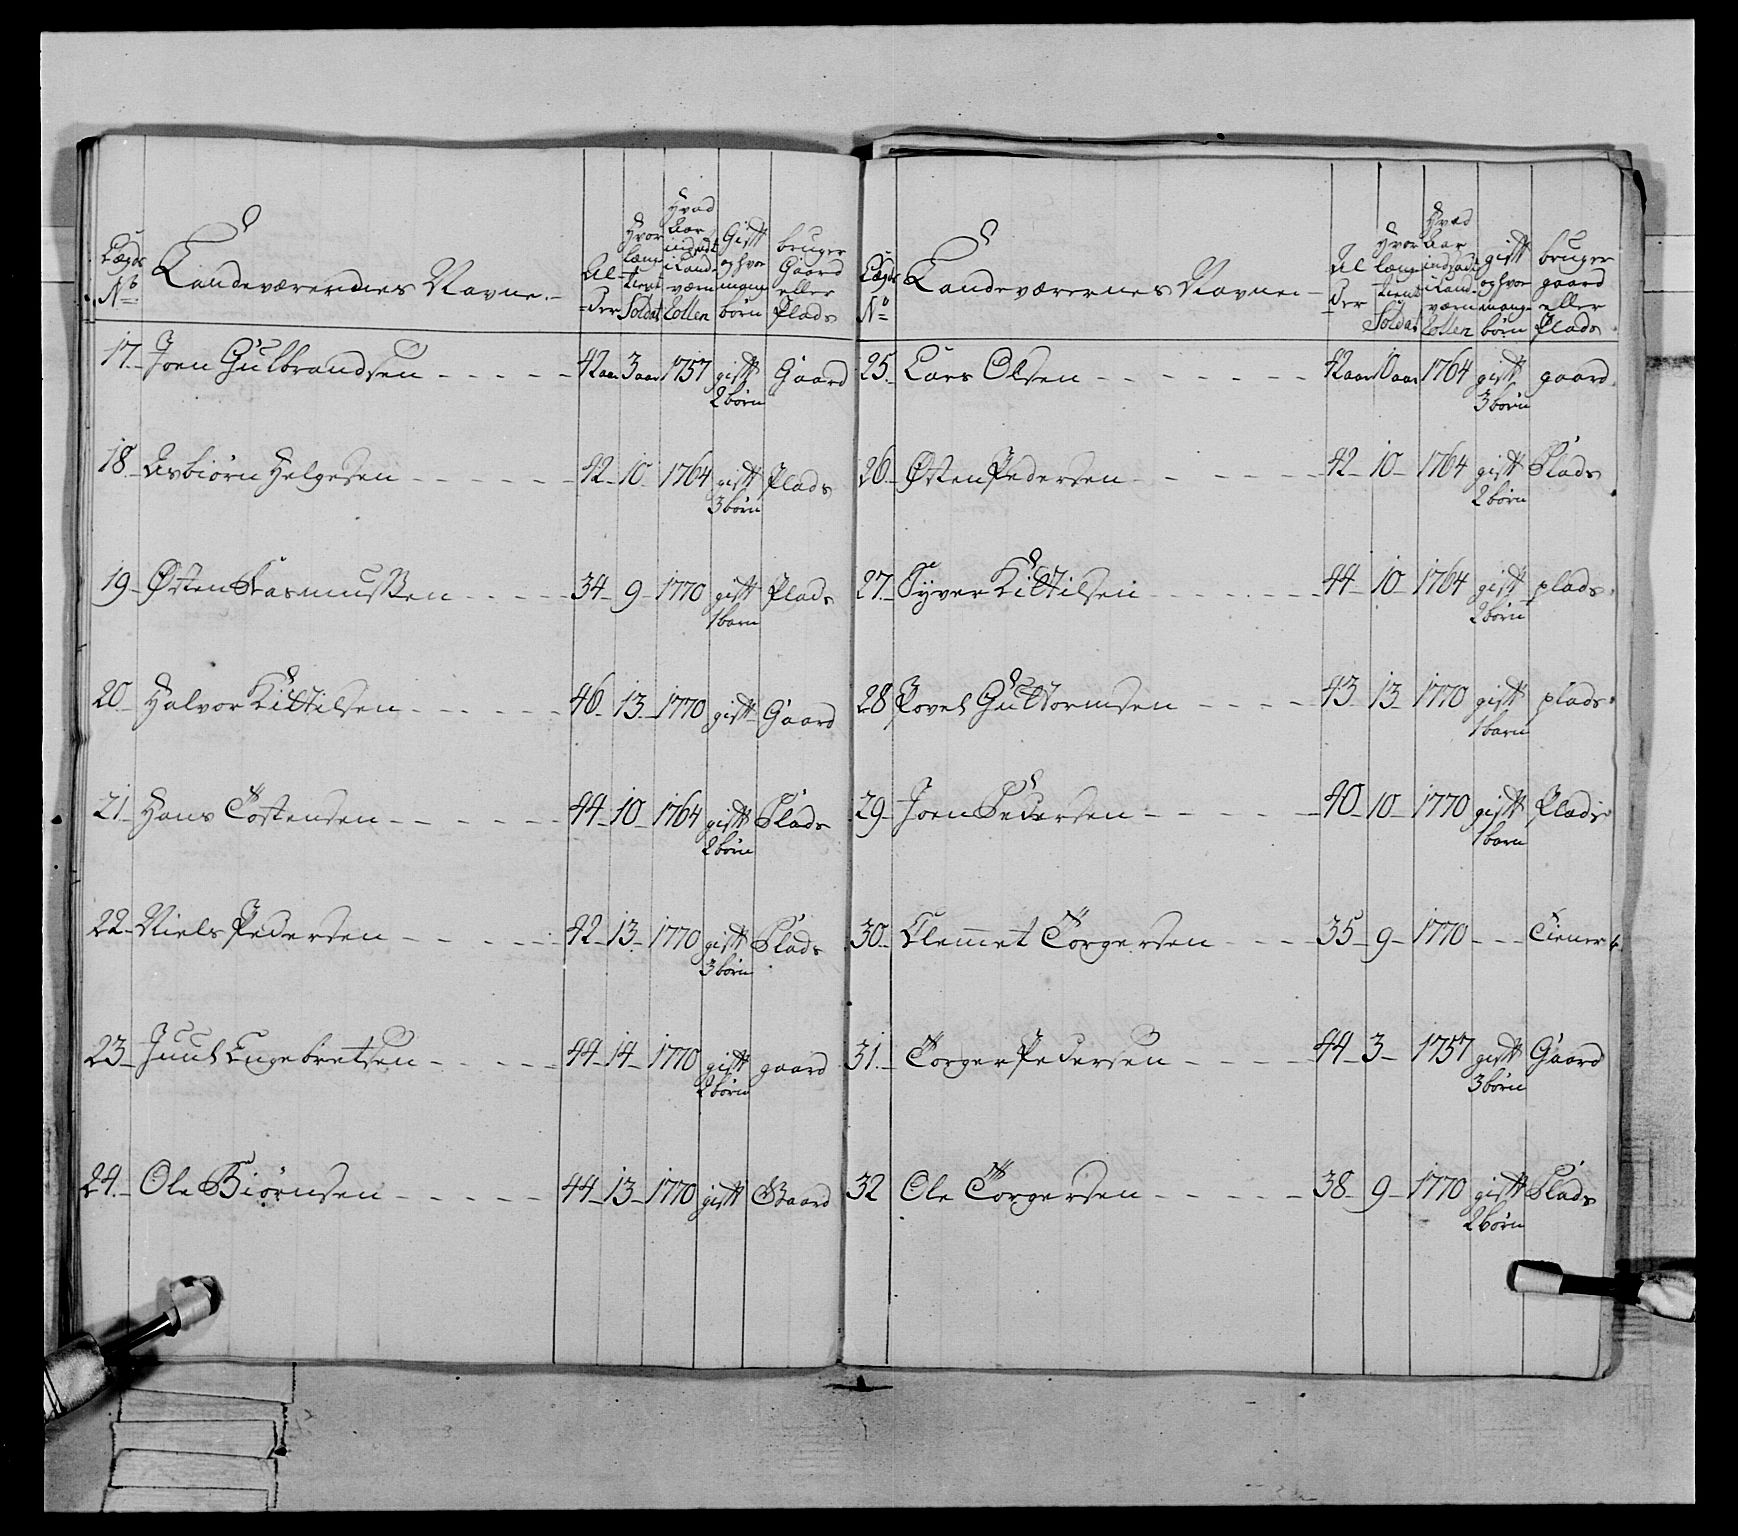 Lægds No Landeværernes Navne. Al-der Hvor læng tient Soldat Hvad Aar indsadt i Land-værn Rollen Gift og hvor mange børn bruger Gaard eller Plads
17. Joen Gulbrandsen 42 aar 3 aar 1757 gift Gaard
2 børn
18. Asbiørn Helgesen 42 10 1764 gift Plads
3 børn
19 Østen Rasmussen 34 9 1770 gift Plads
1 barn
20 Halvor Kittilsen 46 13 1770 gift Gaard
21 Hans Tostensen 44 10 1764 gift Plads
2 børn
22 Niels Pedersen 42 13 1770 gift Plads
3 børn
23 Juul Engebretsen 44 14 1770 gift gaard
2 børn
24. Ole Biørnsen 44 13 1770 gift Gaard
Lægds No Landeværernes Navne Al-der Hvor læng tient Soldat Hvad Aar indsadt i Land-værn Rollen gift og hvor mang- børn bruger gaard eller Plads
25. Lars Olsen 42 aar 10 aar 1764 gift gaard
3 børn
26 Østen Pedersen 42 10 1764 gift Plads
2 børn
27 Syver Kittilsen 44 10 1764 gift plads
2 børn
28 Povel Guttormsen 43 13 1770 gift plads
1 barn
29 Joen Pedersen 40 10 1770 gift Plads
1 barn
30 Clemet Torgersen 35 9 1770 Tiener
31. Torger Pedersen 44 3 1757 gift Gaard
3 børn
32 Ole Torgersen 38 9 1770 gift Plads
2 børn